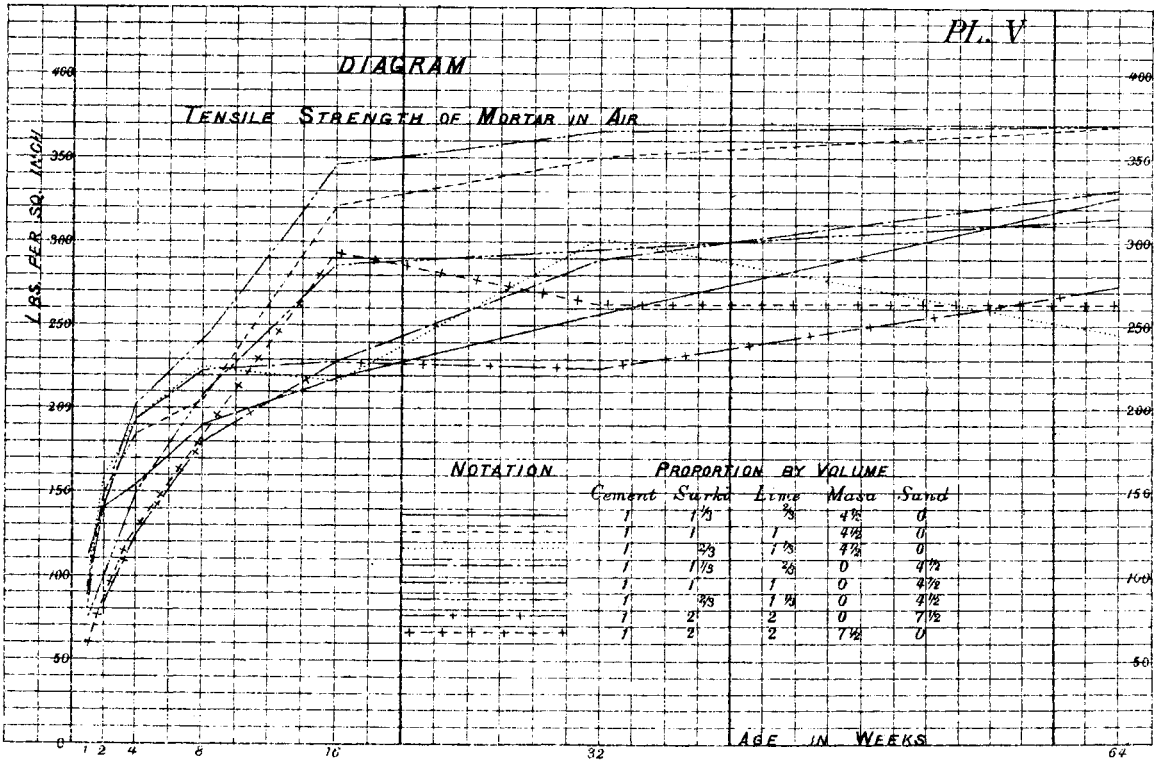 PL. V
DIAGRAM
TENSILE STRENGTH OF MORTAR IN AIR
LBS. PER SQ. INCH
400
350
300
250
200
150
100
50
0
400
350
300
250
200
150
100
50
1 2 4 8 16 32 64
AGE IN WEEKS
NOTATION PROPORTION BY VOLUME
Cement Surki Lime Masa Sand
1 1⅓ ⅔ 4½ 0
1 1 1 4½ 0
1 ⅔ 1⅓ 4½ 0
1 1⅓ ⅔ 0 4½
1 1 1 0 4½
1 ⅔ 1⅓ 0 4½
1 2 2 0 7½
1 2 2 7½ 0